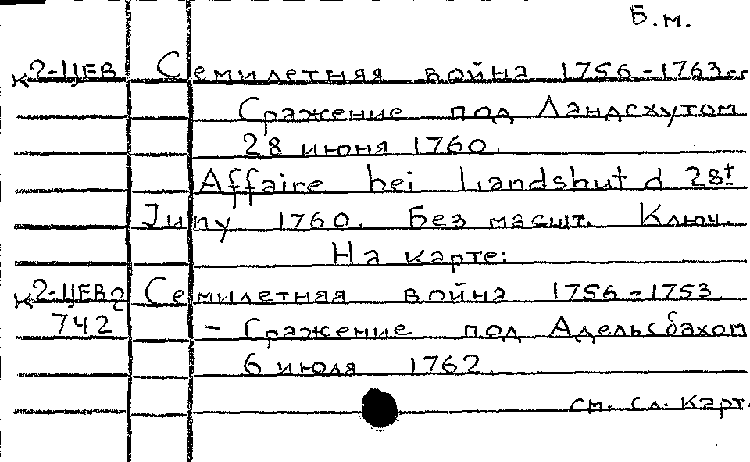 Б.м.
К2-ЦЕВ Семилетняя война 1756-1763гг
Сражение под Ландсхутом
28 июня 1760.
Affaire bei Landshut d 28t
Juny 1760. Без масшт. Ключ.
На карте:
К2-ЦЕВ2 Семилетняя война 1756-1753
742 - Сражение под Адельсбахом
6 июля 1762.
см. сл. карт.